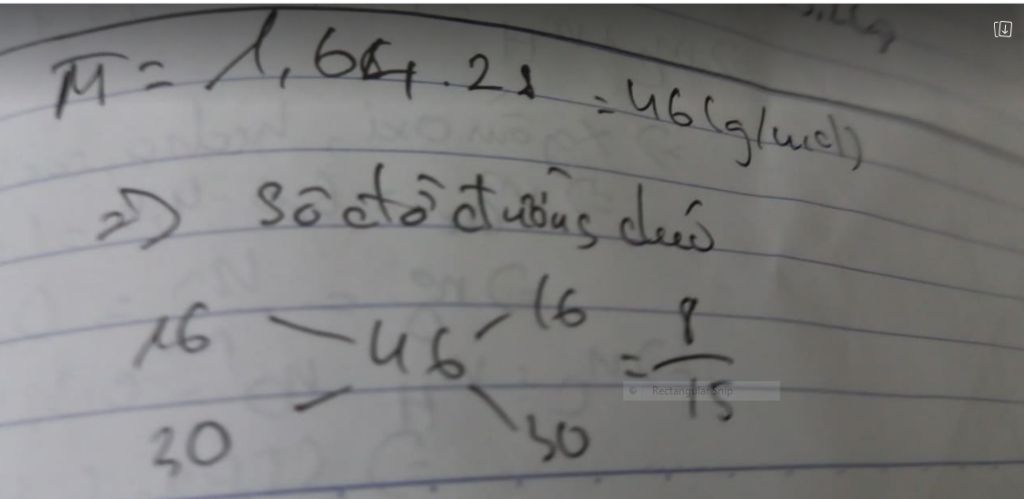 M̅ = 1,64 . 28 = 46 (g/mol)
=> Sơ đồ đường chéo
16 46 16
= 8/15
30 30
Rectangular Snip